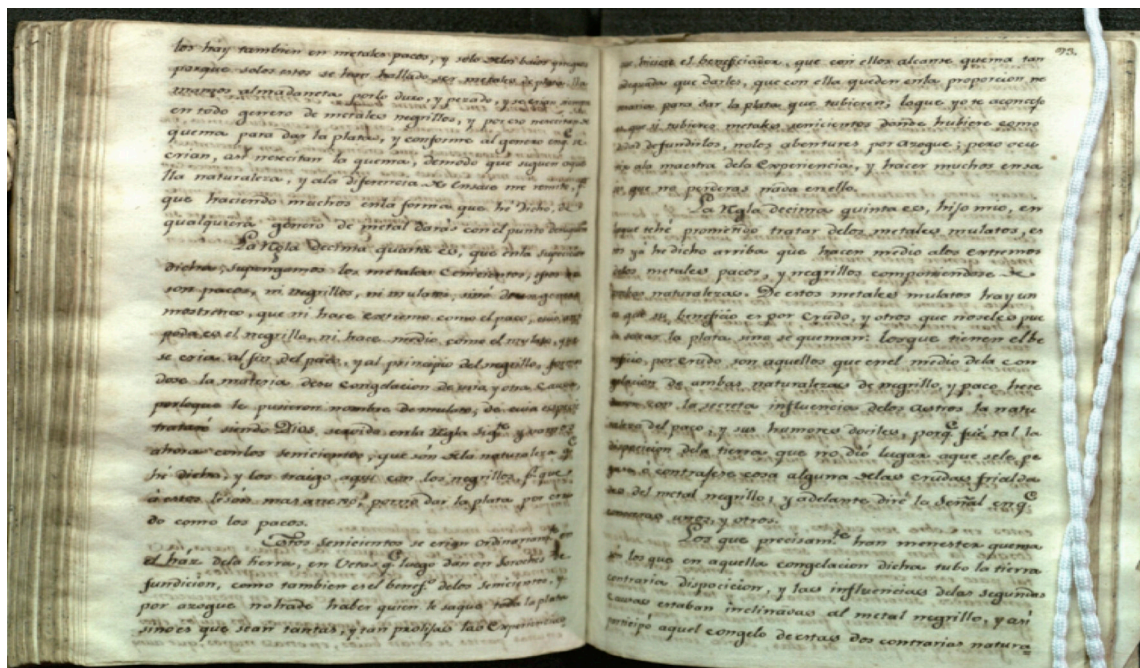 los hay tambien en metales pacos, y solo
porque solos estos se han hallado ser metales de
almadaneta por lo duro, y pesado, y se crian
en todo genero de metales negrillos, y por eso necesitan
quema para dar la plata, y conforme al genero enq̃ se
crian, asi necesitan la quema, demodo que siguen aque
lla naturaleza, y ala diferencia de ensaies me remito,
que haciendo muchos enla forma que hé dicho, de
qualquiera género de metal darás con el punto
La Rgla decima quarta es, que enla
dicha, supongamos los metales cenicientos,
son pacos, ni negrillos, ni mulatos, sinó
mostrenco, que ni hace extremo como el paco,
es el negrillo, ni hace medio como el mulato,
se cria al fin del paco, y al principio del negrillo,
dose la materia desu congelacion de una y otra causa,
porloque le pusieron nombre de mulato, de esta
trataré siendo Dios servido enla Rgla sigᵗᵉ y
ahora conlos senicientos, que son dela naturaleza q̃
hé dicho, y los traigo aqui con los negrillos,
á estos le son mas anexos, por no dar la plata por cru
do como los pacos.
Estos senicientos se crian ordinariamᵗᵉ en
el ház dela tierra, en Vetas q̃ luego dán en
fundicion, como tambien es el benefᵒ delos senicientos, y
por azogue no hade haber quien le saque toda la plata
sino es que sean tantas, y tan prolijas las experiencias
93.
hiciere el beneficiador, que con ellos alcanse quema tan
adequada que darles, que con ella queden enla proporcion ne
para dar la plata que tubieren; loque yo te aconcejo
que si tubieres metales senicientos donde hubiere como
defundirlos, nolos abentures por azogue; pero
ala maestra dela Experiencia, y hacer muchos ensa
que no perderas nada en ello.
La Rgla decima quinta es, hijo mio, en
que tehé prometido tratar delos metales mulatos, es
ya hé dicho arriba que hacen medio alos extremos
delos metales pacos, y negrillos componiendose de
ambas naturalezas. De estos metales mulatos hay un
que su beneficio es por crudo, y otros que noseles pue
sacar la plata sino se queman: los que tienen el be
neficio por crudo son aquellos que enel medio dela con
gelacion de ambas naturalezas de negrillo, y paco
con la secreta influencia delos Astros la natu
raleza del paco, y sus humores dociles, porq̃ fué tal la
disposicion dela tierra que no dió lugar aque sele pe
ó contrajese cosa alguna delas crudas frialda
des del metal negrillo; y adelante diré la señal enq̃
unos, y otros.
Los que precisamᵗᵉ han menester quema
son los que en aquella congelacion dicha tubo la tierra
contraria disposicion, y las influencias delas segundas
causas estaban inclinadas al metal negrillo, y asi
participó aquel congelo de estas dos contrarias natura